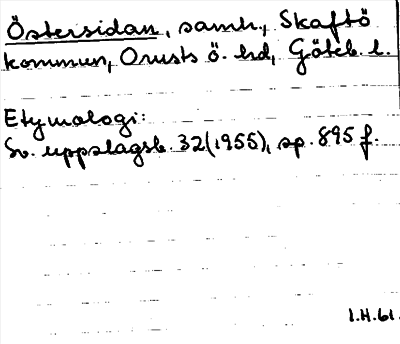 Östersidan, samh., Skaftö
kommun, Orusts ö. hd, Göteb. l.
Etymologi:
Sv. uppslagsb. 32(1955), sp. 895 f.
1.H.61.